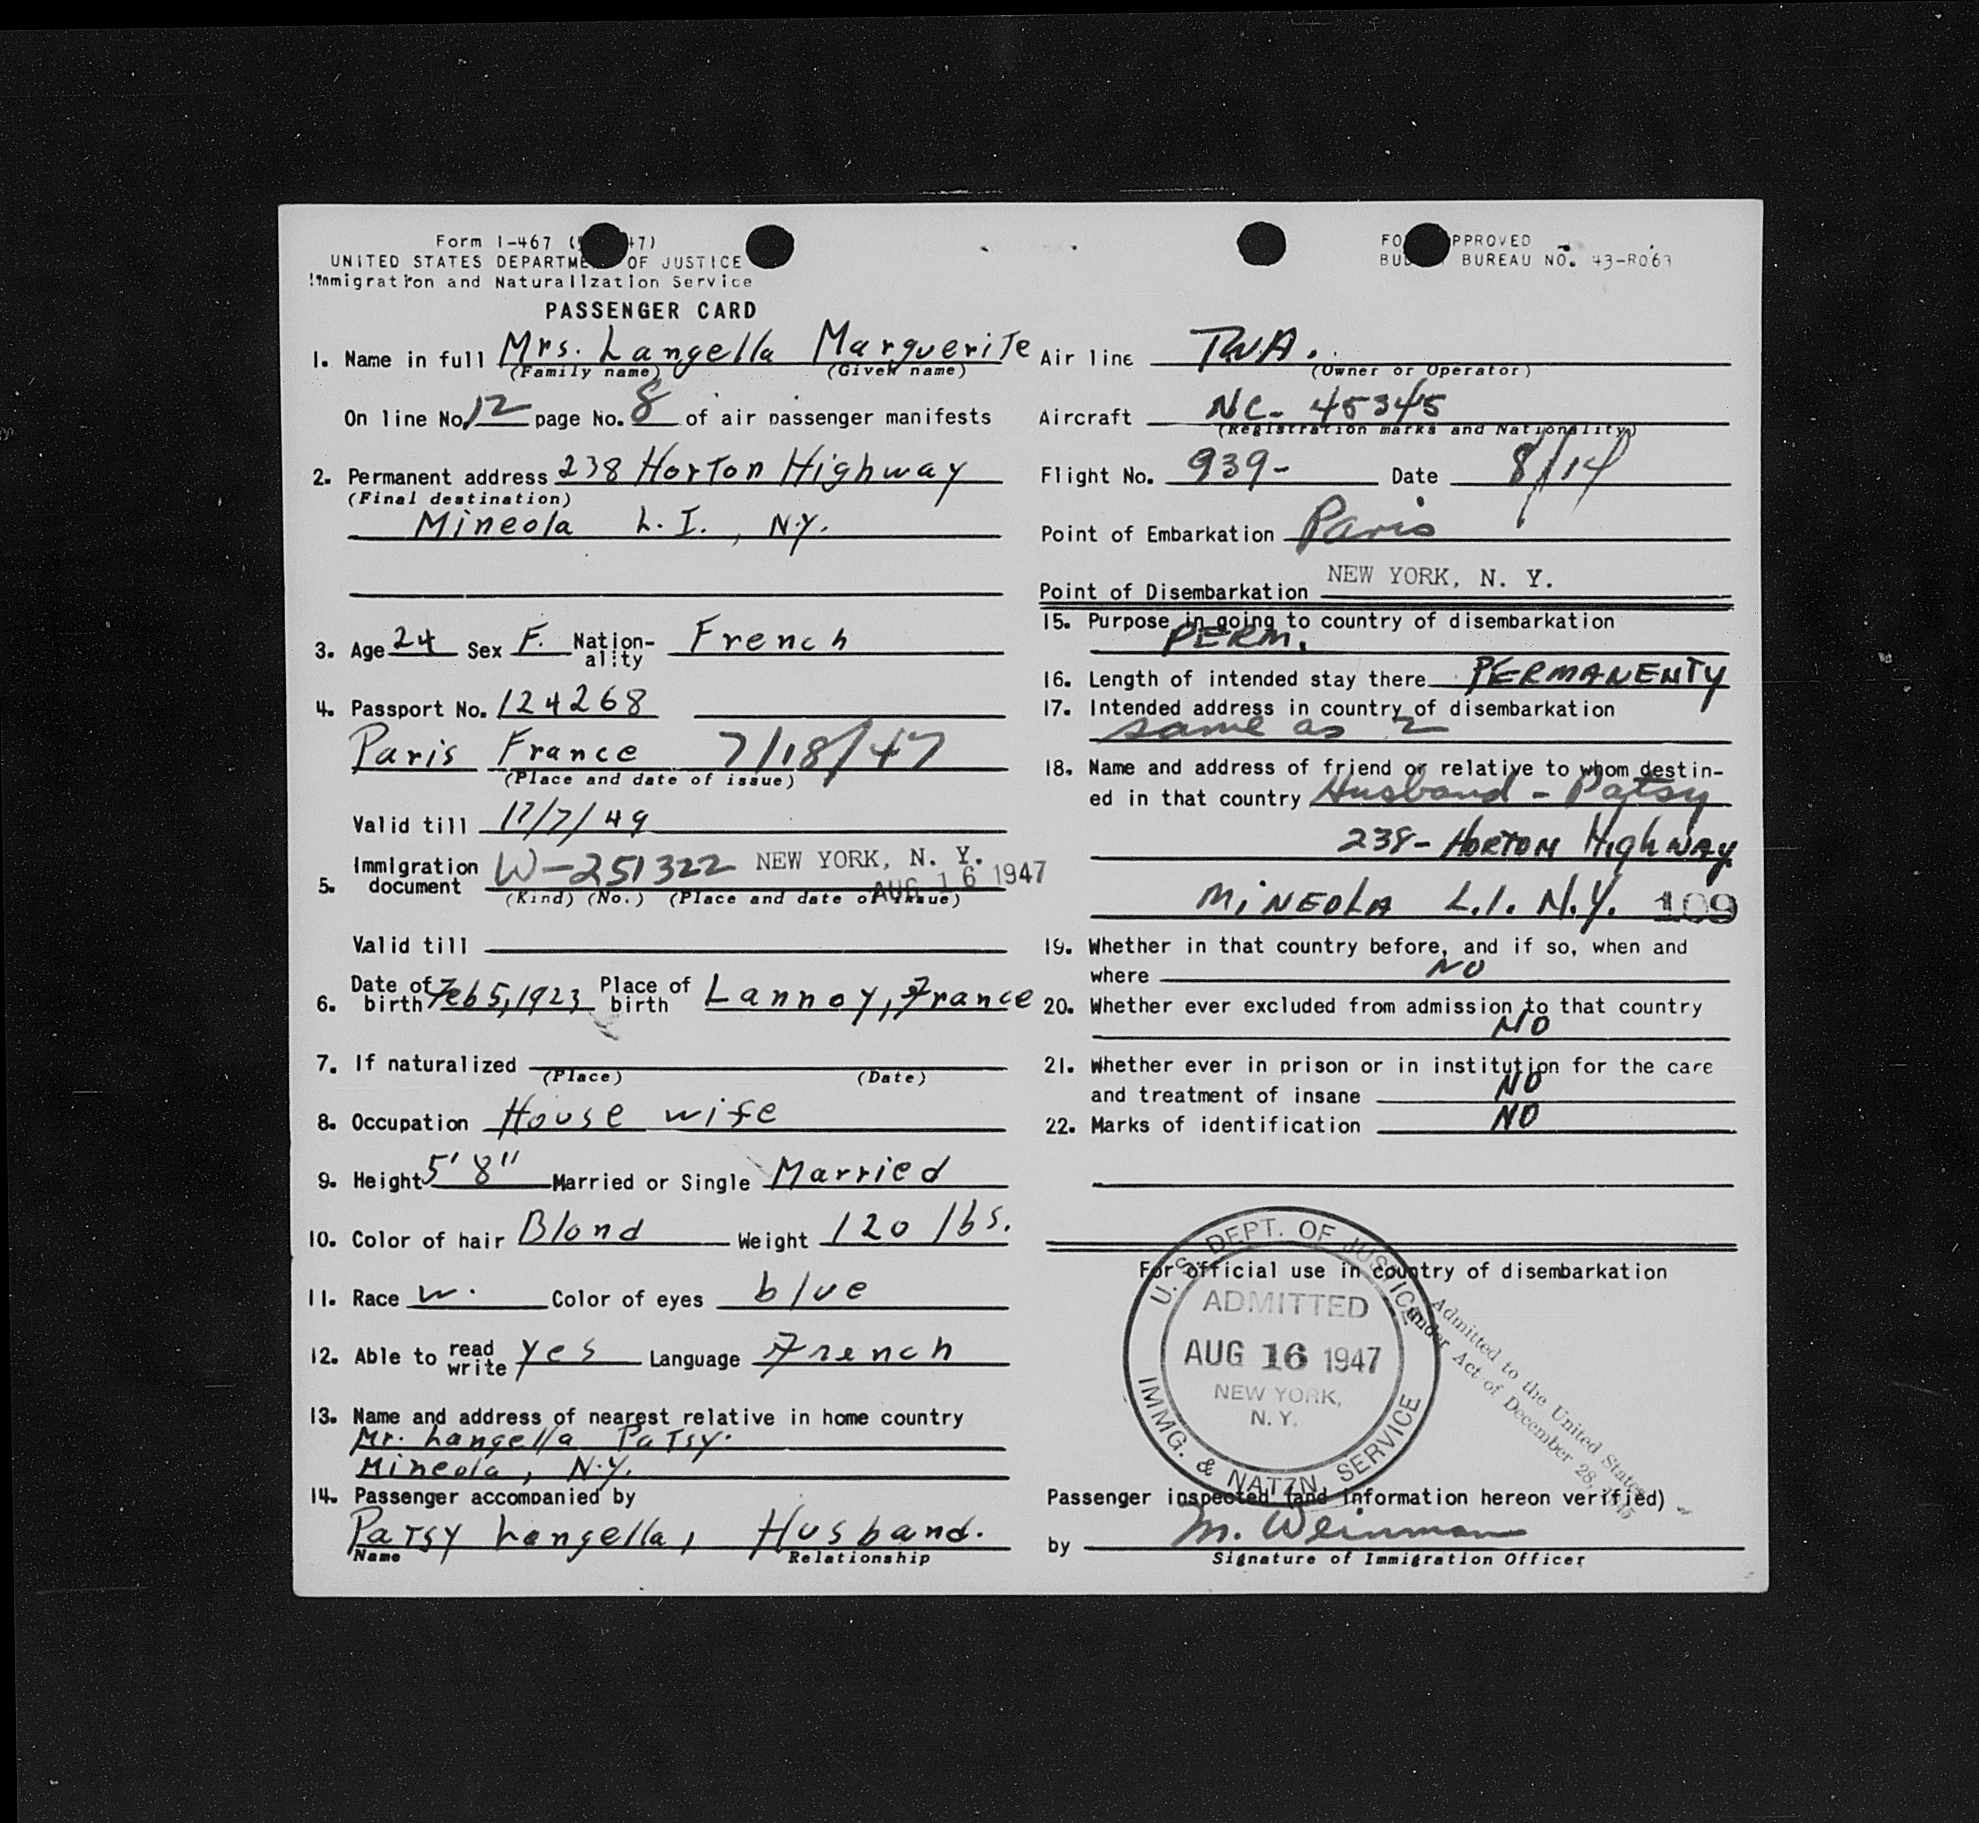 Form I-467 ( 47)
UNITED STATES DEPARTME OF JUSTICE
Immigration and Naturalization Service
PASSENGER CARD
1. Name in full Mrs. Langella Marguerite
(Family name) (Given name)
On line No. 12 page No. 8 of air passenger manifests
2. Permanent address 238 Horton Highway
(Final destination)
Mineola L.I., N.Y.
3. Age 24 Sex F. Nation-ality French
4. Passport No. 124268
Paris France 7/18/47
(Place and date of issue)
Valid till 17/7/49
5. Immigration document W-251322 NEW YORK, N. Y.
AUG 16 1947
(Kind) (No.) (Place and date of issue)
Valid till
6. Date of birth Feb 5, 1923 Place of birth Lannoy, France
7. If naturalized
(Place) (Date)
8. Occupation House wife
9. Height 5' 8" Married or Single Married
10. Color of hair Blond Weight 120 lbs.
11. Race w. Color of eyes blue
12. Able to read write yes Language French
13. Name and address of nearest relative in home country
Mr. Langella Patsy.
Mineola, N.Y.
14. Passenger accompanied by
Patsy Langella, Husband.
Name Relationship
FO PPROVED
BU BUREAU NO. 43-R063
Air line TWA.
(Owner or Operator)
Aircraft NC-45345
(Registration marks and Nationality)
Flight No. 939- Date 8/14
Point of Embarkation Paris
Point of Disembarkation NEW YORK, N. Y.
15. Purpose in going to country of disembarkation
PERM.
16. Length of intended stay there PERMANENTY
17. Intended address in country of disembarkation
same as 2
18. Name and address of friend or relative to whom destin-
ed in that country Husband - Patsy
238- HORTON HighWAY
MiNEOLA L.I. N.Y. 109
19. Whether in that country before, and if so, when and
where NO
20. Whether ever excluded from admission to that country
NO
21. Whether ever in prison or in institution for the care
and treatment of insane NO
22. Marks of identification NO
For official use in country of disembarkation
U. S. DEPT. OF JUSTICE
ADMITTED
AUG 16 1947
NEW YORK,
N. Y.
IMMG. & NATZN. SERVICE
Admitted to the United States
under Act of December 28, 1945
Passenger inspected (and information hereon verified)
by M. Weinman
Signature of Immigration Officer